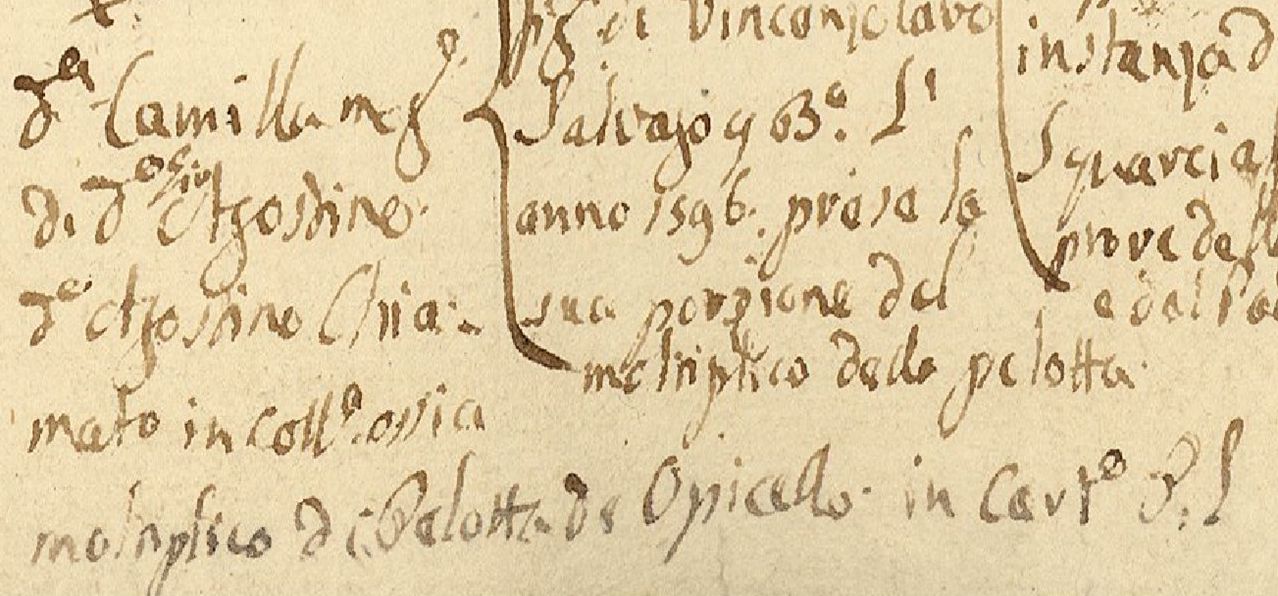 dᵃ Camilla mogᵉ
di dº Agostino
dº Agostino Chia-
mato in collª ossia
moltiplico di Pelotta de Opicello in Cartº P. L
fig. di
Salvago q 63º. L'
anno 1596. prese la
sua porzione del
moltiplico della pelotta
instanza d
Squarciaf
prove dell
e dal